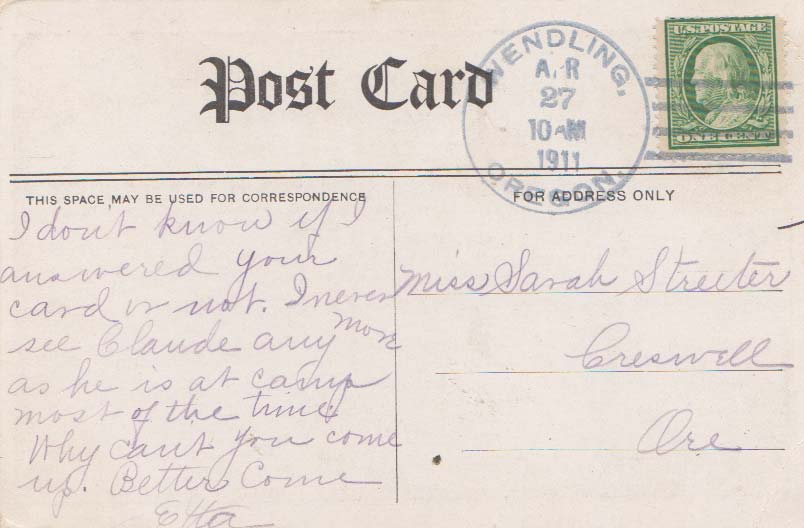 Post Card
WENDLING,
APR
27
10 AM
1911
OREGON.
U.S. POSTAGE
ONE CENT
THIS SPACE MAY BE USED FOR CORRESPONDENCE
I don't know if I
answered your
card or not. I never
see Claude any more
as he is at camp
most of the time
Why can't you come
up. Better Come
Etta
FOR ADDRESS ONLY
Miss Sarah Streeter
Creswell
Ore